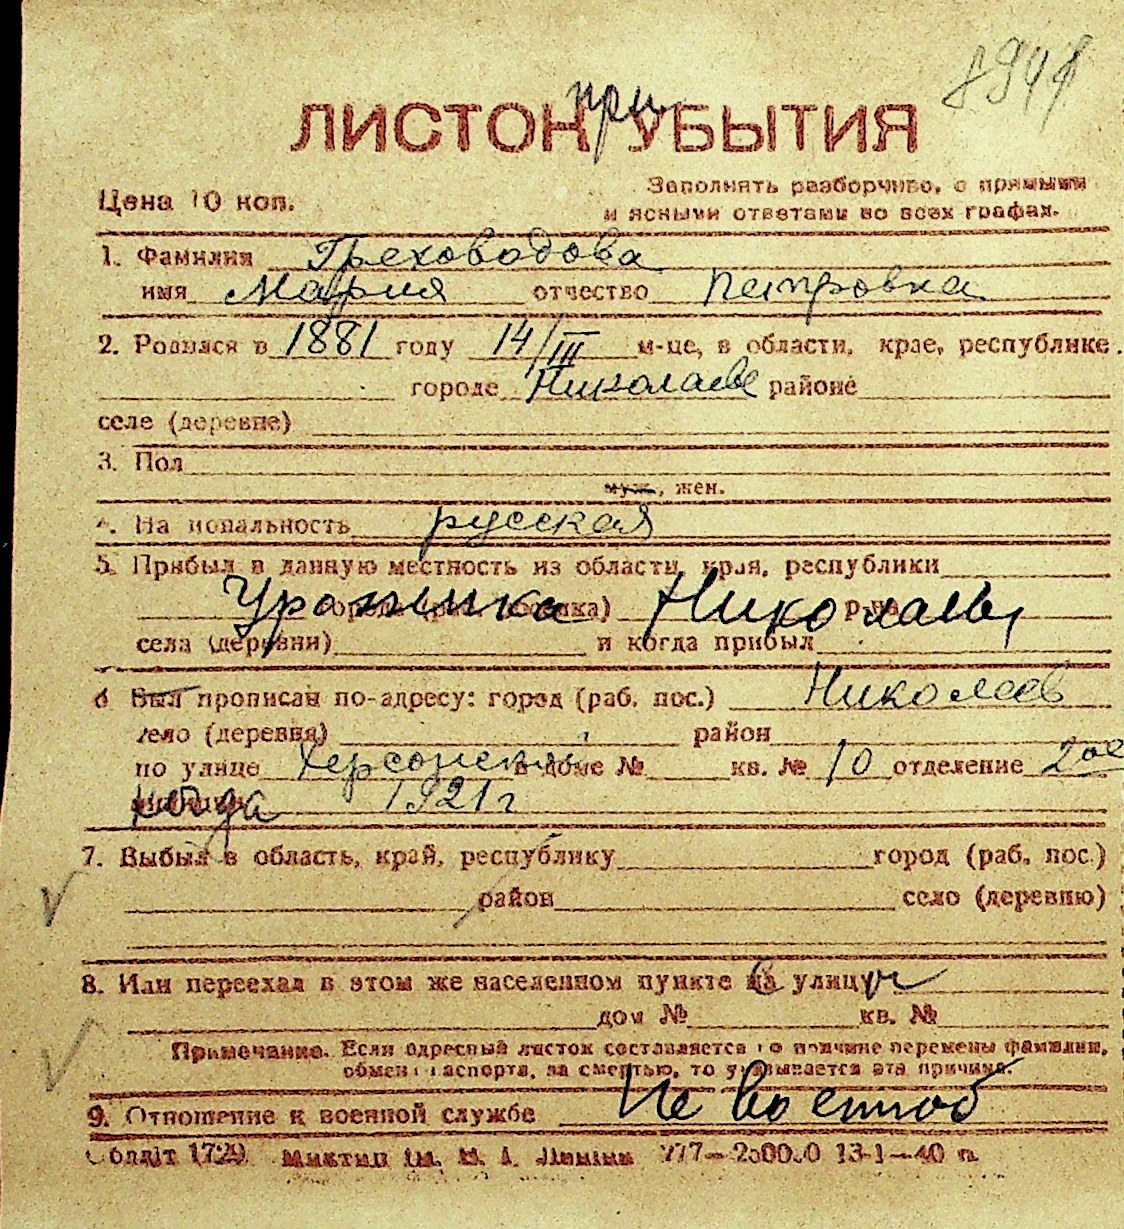 ЛИСТОК при УБЫТИЯ
Цена 10 коп.
Заполнять разборчиво, с прямыми
и ясными ответами во всех графах.
1. Фамилия Греховодова
имя Мария отчество Петровна
2. Родился в 1881 году 14/III м-це, в области, крае, республике
городе Николаеве районе
селе (деревне)
3. Пол
муж., жен.
4. Национальность русская
5. Прибыл в данную местность из области, края, республики
Уроженка Николаев р-на
села (деревни) и когда прибыл
6 Был прописан по-адресу: город (раб. пос.) Николаев
село (деревня) район
по улице Херсонская в доме № кв. № 10 отделение 2ое
Когда 1921 г
7. Выбыл в область, край, республику город (раб. пос.)
район село (деревню)
8. Или переехал в этом же населенном пункте на улицу
дом № кв. №
Примечание. Если адресный листок составляется по причине перемены фамилии,
обмена паспорта, за смертью, то указывается эта причина.
9. Отношение к военной службе Не военноб
Облліт 1729. ім. В. І. Леніна 777— 13-1—40 п.